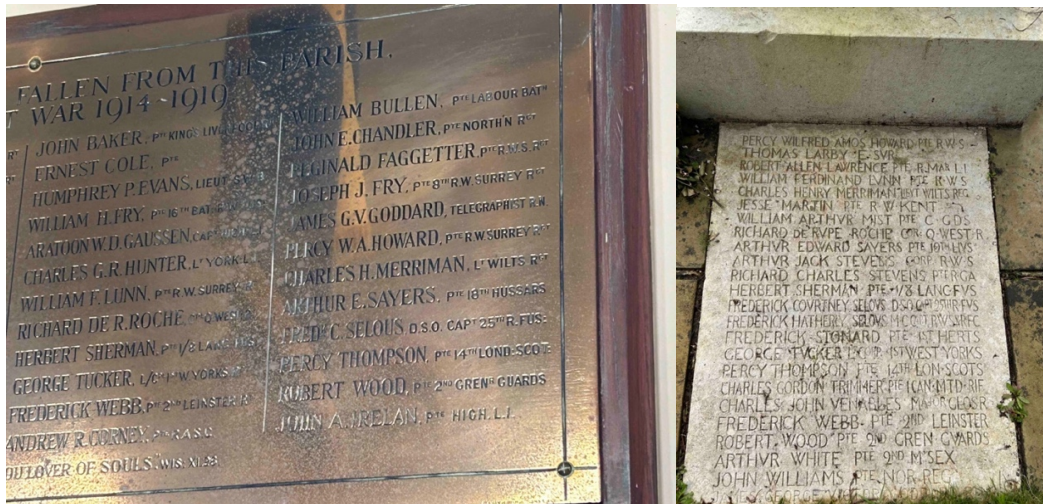 FALLEN FROM THIS PARISH.
T WAR 1914-1919
JOHN BAKER, PTE KING'S LIVERPOOL
ERNEST COLE, PTE
HUMPHREY P. EVANS, LIEUT
WILLIAM H. FRY, PTE 16TH BAT.
ARATOON W.D. GAUSSEN, CAPT
CHARLES G.R. HUNTER, LT YORK L.I.
WILLIAM F. LUNN, PTE R.W. SURREY R
RICHARD DE R. ROCHE,
HERBERT SHERMAN, PTE 1/8 LANC. FUS.
GEORGE TUCKER, L/C 1ST W. YORKS
FREDERICK WEBB, PTE 2ND LEINSTER R
ANDREW R. CORNEY, PTE R.A.S.C.
LOVER OF SOULS. WIS. XI. 26
WILLIAM BULLEN, PTE LABOUR BATN
JOHN E. CHANDLER, PTE NORTH'N RGT
REGINALD FAGGETTER, PTE R.W.S. RGT
JOSEPH J. FRY, PTE 8TH R.W. SURREY RGT
JAMES G.V. GODDARD, TELEGRAPHIST R.N.
PERCY W.A. HOWARD, PTE R.W. SURREY RGT
CHARLES H. MERRIMAN, LT WILTS RGT
ARTHUR E. SAYERS, PTE 18TH HUSSARS
FREDK C. SELOUS D.S.O. CAPT 25TH R. FUS:
PERCY THOMPSON, PTE 14TH LOND: SCOT:
ROBERT WOOD, PTE 2ND GRENR GUARDS
JOHN A. IRELAN, PTE HIGH. L.I.
PERCY WILFRED AMOS HOWARD PTE R.W.S
THOMAS LARBY E. SVR
ROBERT ALLEN LAWRENCE PTE R. MAR L.I
WILLIAM FERDINAND LVNN PTE R.W.S
CHARLES HENRY MERRIMAN LIEVT WILTS REG
JESSE MARTIN PTE R.W. KENT
WILLIAM ARTHVR MIST PTE C. GDS
RICHARD DE RVPE ROCHE Q. WEST. R
ARTHVR EDWARD SAYERS PTE 19TH HVS
ARTHVR JACK STEVENS CORP R.W.S
RICHARD CHARLES STEVENS PTE R.G.A
HERBERT SHERMAN PTE 1/8 LANC FVS
FREDERICK COVRTNEY SELOVS D.S.O. CAPT FVS
FREDERICK HATHERLY SELOVS M.C. CAPT R.W.S R.F.C
FREDERICK SIGNARD PTE 1ST HERTS
GEORGE TVCKER L. CORP 1ST WEST YORKS
PERCY THOMPSON PTE 14TH LON. SCOTS
CHARLES GORDON TRIMMER PTE 1 CAN. MTD. RIF
CHARLES JOHN VENABLES MAJR GLOSR
FREDERICK WEBB PTE 2ND LEINSTER
ROBERT WOOD PTE 2ND GREN GVARDS
ARTHVR WHITE PTE 2ND M'SEX
JOHN WILLIAMS PTE NOR. REG
GEORGE